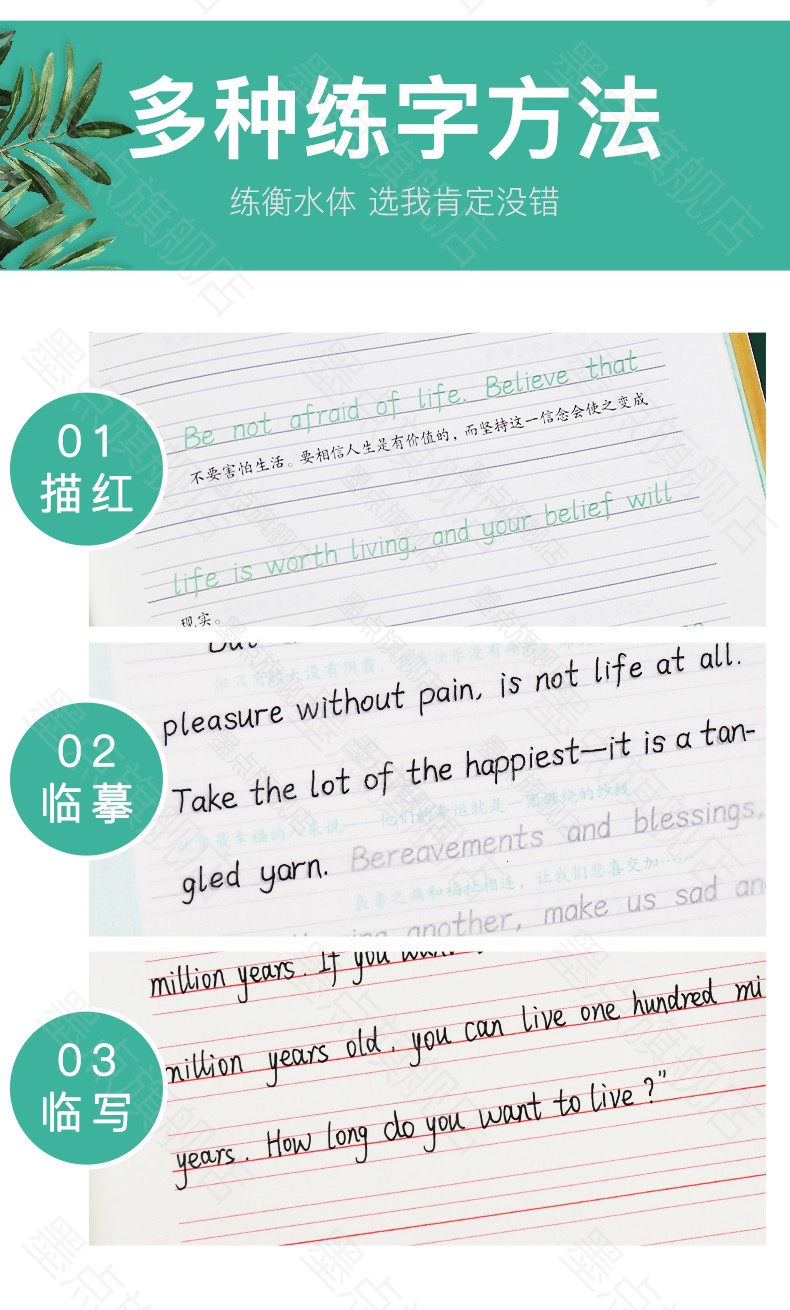 多种练字方法
练衡水体 选我肯定没错
01
描红
Be not afraid of life. Believe that
不要害怕生活。要相信人生是有价值的，而坚持这一信念会使之变成
life is worth living, and your belief will
现实。
02
临摹
But
pleasure without pain, is not life at all.
Take the lot of the happiest—it is a tan-
他们的命运就是一团缠绕的纱线
gled yarn. Bereavements and blessings,
丧亲之痛和福祉相连，让我们悲喜交加……
another, make us sad an
03
临写
million years. If you want
million years old, you can live one hundred mi
years. How long do you want to live?"
墨点旗舰店